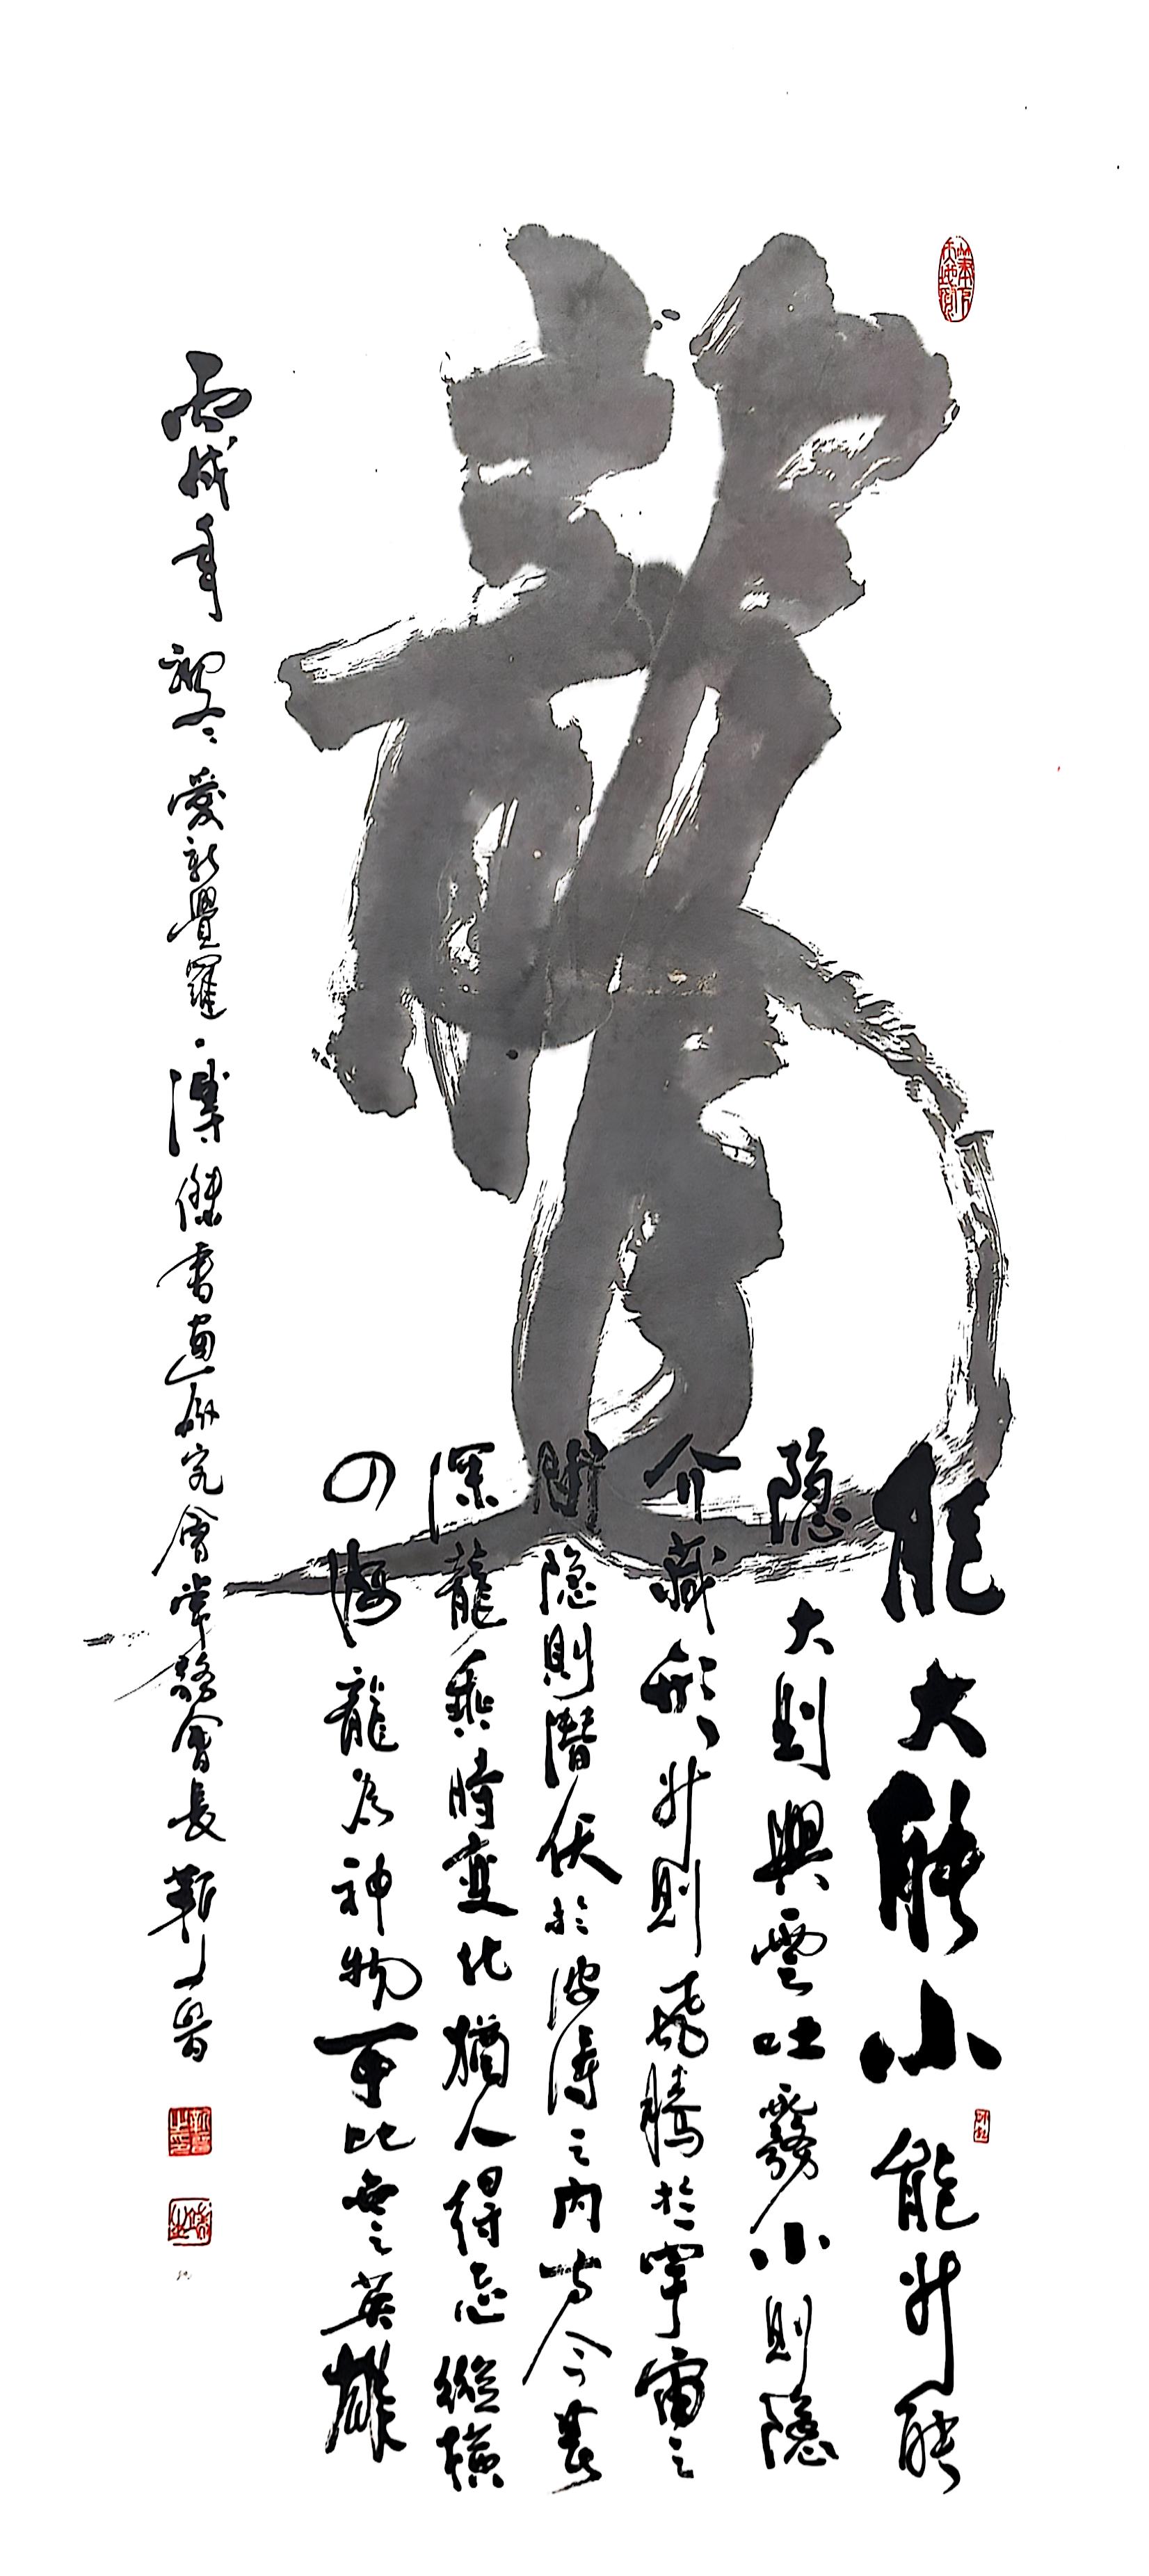 龍
能大能小能升能
隐大則興雲吐霧小則隐
介藏形升則飛騰於宇宙之
間隐則潛伏於波濤之内方今春
深龍乘時變化猶人得志縱橫
四海龍為神物可比世之英雄
丙戌年初冬愛新覺羅·溥傑書畫研究會常務會長靳晋